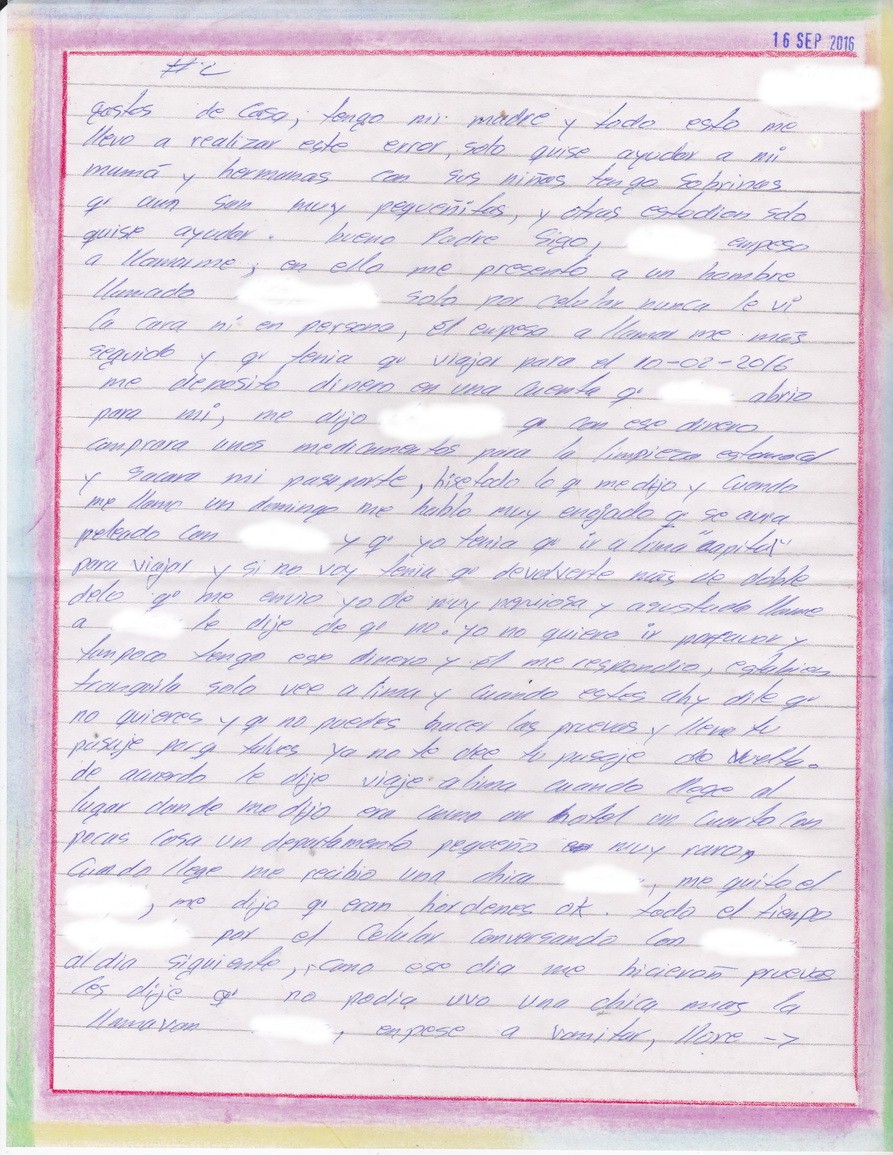 16 SEP 2016
gastos de Casa, tengo mi madre y todo esto me
llevo a realizar este error, solo quise ayudar a mi
mamá y hermanas con sus niñas tengo sobrinas
q' aun son muy pequeñitas, y otras estudian solo
quise ayudar. bueno Padre Sigo, empeso
a llamarme, en ello me presento a un hombre
llamado solo por celular nunca le vi
la cara ni en persona, Él empeso a llamar me más
seguido y q' tenia q' viajar para el 10-02-2016
me deposito dinero en una cuenta q' abrio
para mi, me dijo q' con ese dinero
comprara unos medicamentos para la limpieza estomacal
y sacara mi pasaporte, hise todo lo q' me dijo y cuando
me llamo un domingo me hablo muy enojado q' se avia
peleado con y q' yo tenia q' ir a lima "capital"
para viajar y si no voy tenia q' devolverte más de doble
delo q' me envio yo de muy nerviosa y asustada llame
a le dije de q' no. yo no quiero ir porfavor y
tampoco tengo ese dinero y él me respondio, estabien
tranquila solo vee a lima y cuando estes ahy dile q'
no quieres y q' no puedes hacer las pruevas y lleva tu
pasaje porq talves ya no te dee tu pasaje de vuelta.
de acuerdo le dije viaje a lima cuando llege al
lugar donde me dijo era como un hotel un cuarto con
pocas cosa un departamento pequeño muy raro,
Cuando llege me recibio una chica , me quito el
, me dijo q' eran hordenes ok. todo el tiempo
por el celular conversando con
al dia siguiente, como ese dia me hicieron pruevas
les dije q' no podia uvo una chica mas la
llamavan , enpese a vomitar, llore ->